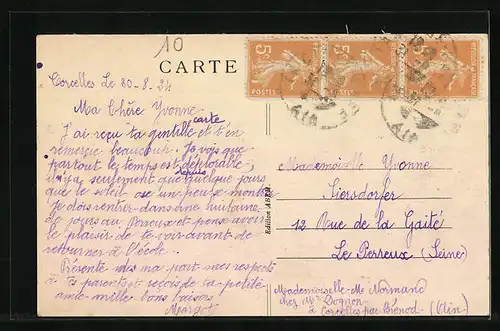 10
CARTE
Corcelles Le 30-8.24
Ma Chère Yvonne
J'ai reçu ta gentille carte et t'en
remercie beaucoup. Je vois que
partout le temps est déplorable,
seulement que depuis quelques jours
que le soleil ose un peu se montrer
Je dois rentrer dans une huitaine
de jours au Perreux et pense avoir
le plaisir de te voir avant de
retourner à l'école.
Présente de ma part mes respects
à tes parents et reçois de ta petite
amie mille bons baisers
Margot
Edition ABEM
Mademoiselle Yvonne
Siersdorfer
12 Rue de la Gaîté
Le Perreux (Seine)
Mademoiselle M. Normand
chez Mr Dognon
à Corcelles par Brénod (Ain)